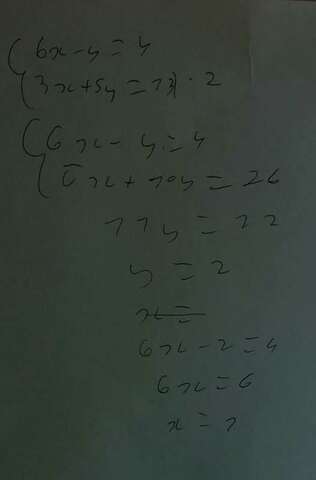 6x-y=4
3x+5y=13 | · 2
6x-y=4
6x+10y=26
11y=22
y=2
x=
6x-2=4
6x=6
x=1